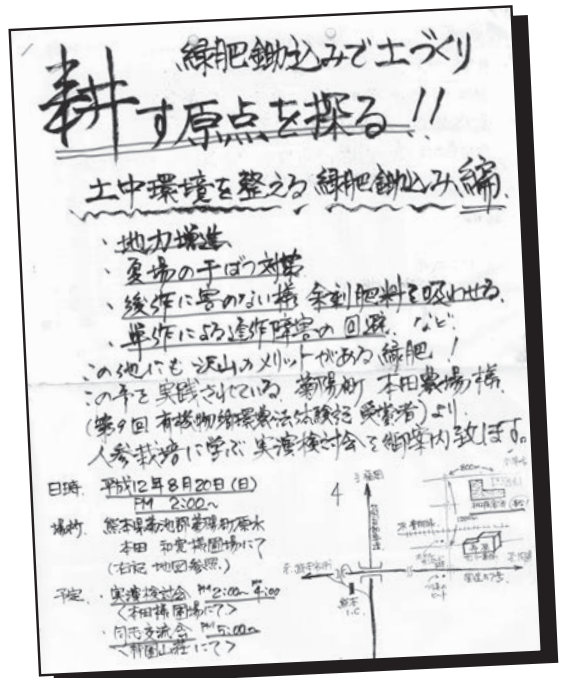 緑肥鋤込みで土づくり
耕す原点を探る!!
土中環境を整える緑肥鋤込み編
・地力増進
・夏場の干ばつ対策
・後作に害のない様 余剰肥料を吸わせる.
・単作による連作障害の回避. など
この他にも沢山のメリットがある緑肥!
この手を実践されている 菊陽町 本田農場様
(第9回 有機物循環農法体験記 受賞者)より
人参栽培に学ぶ実演検討会を御案内致します。
日時. 平成12年8月20日(日)
PM 2:00~
場所. 熊本県菊池郡菊陽町原水
本田 和寛様圃場にて
(右記 地図参照.)
予定. ・実演検討会 PM2:00~PM4:00
<本田様圃場にて>
・同志交流会 PM5:00~
4
800m
熊本
I.C.